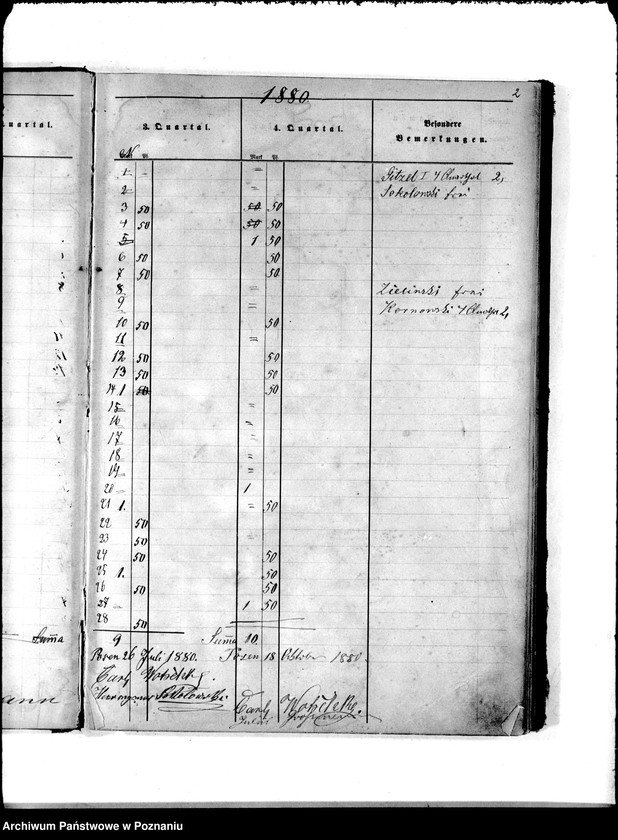 1880 2
uartal. 3. Quartal. 4. Quartal. Besondere
Bemerkungen.
M Pf. Mark Pf.
1 = = Pitzel I 4 Quartal 2,
2 = = Sokolowski frei
3 50 50 50
4 50 50 50
5 1 50
6 50 50
7 50 50
8 = Zielinski frei
9 = Kornowski 4 Quartal 2,
10 50 50
11 =
12 50 50
13 50 50
14 1 50 50
15 =
16
17 =
18 =
19 =
20 1
21 1. = 50
22 50
23 50
24 50 50
25 1. 50
26 50 50
27 1 50
28 50
Suma 9 Suma 10
Posen 26 Juli 1880. Posen 18 Oktober 1880.
Sokolowski.
ann
Archiwum Państwowe w Poznaniu